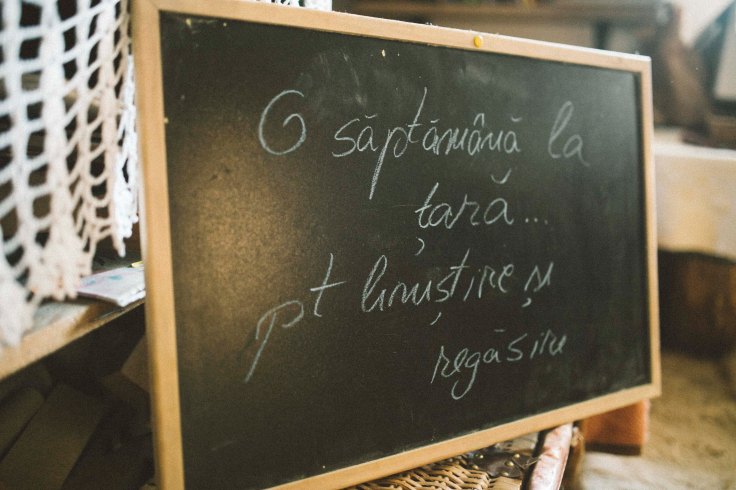 O săptămână la
țară...
pt liniștire și
regăsire